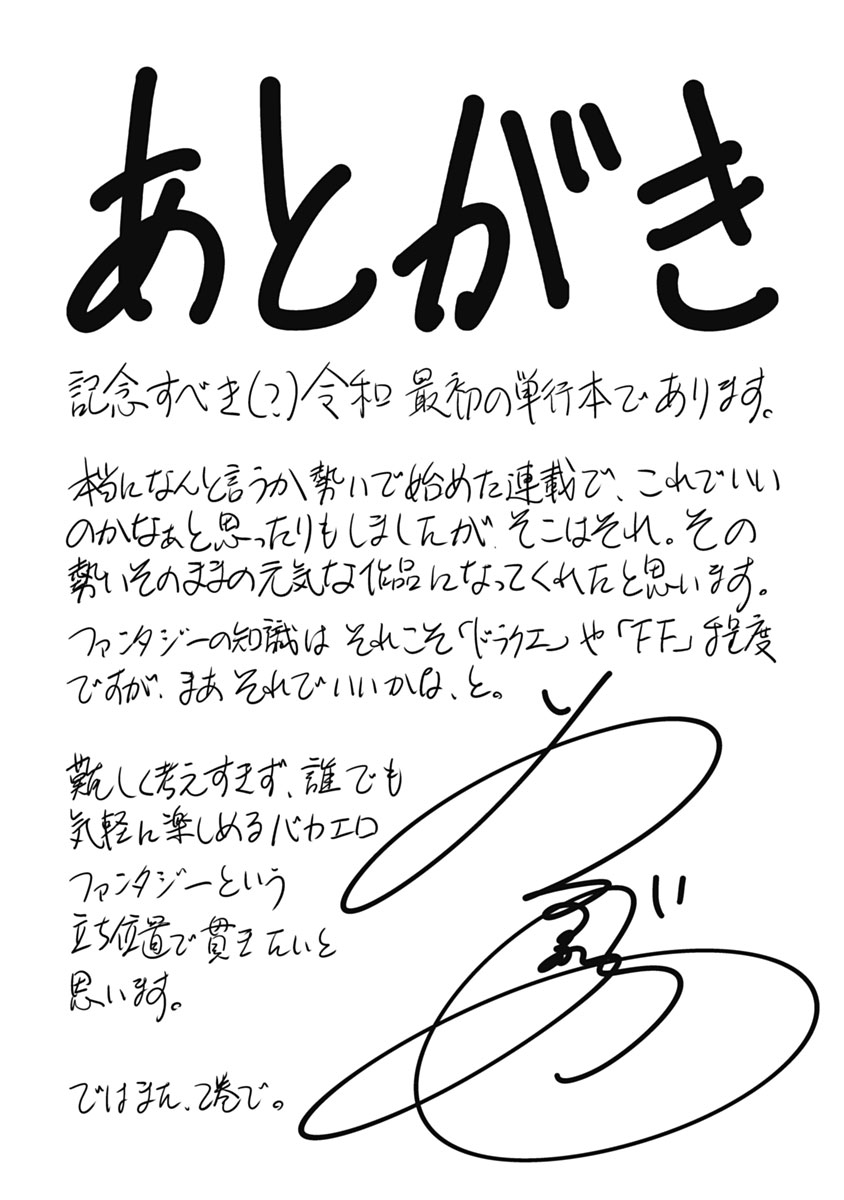 あとがき
記念すべき(?)令和 最初の単行本であります。
本当になんと言うか勢いで始めた連載で、これでいい
のかなぁと思ったりもしましたが、そこはそれ。その
勢いそのままの元気な作品になってくれたと思います。
ファンタジーの知識は それこそ「ドラクエ」や「FF」程度
ですが、まあ それでいいかな、と。
難しく考えすぎず、誰でも
気軽に楽しめるバカエロ
ファンタジーという
立ち位置で貫きたいと
思います。
ではまた、2巻で。